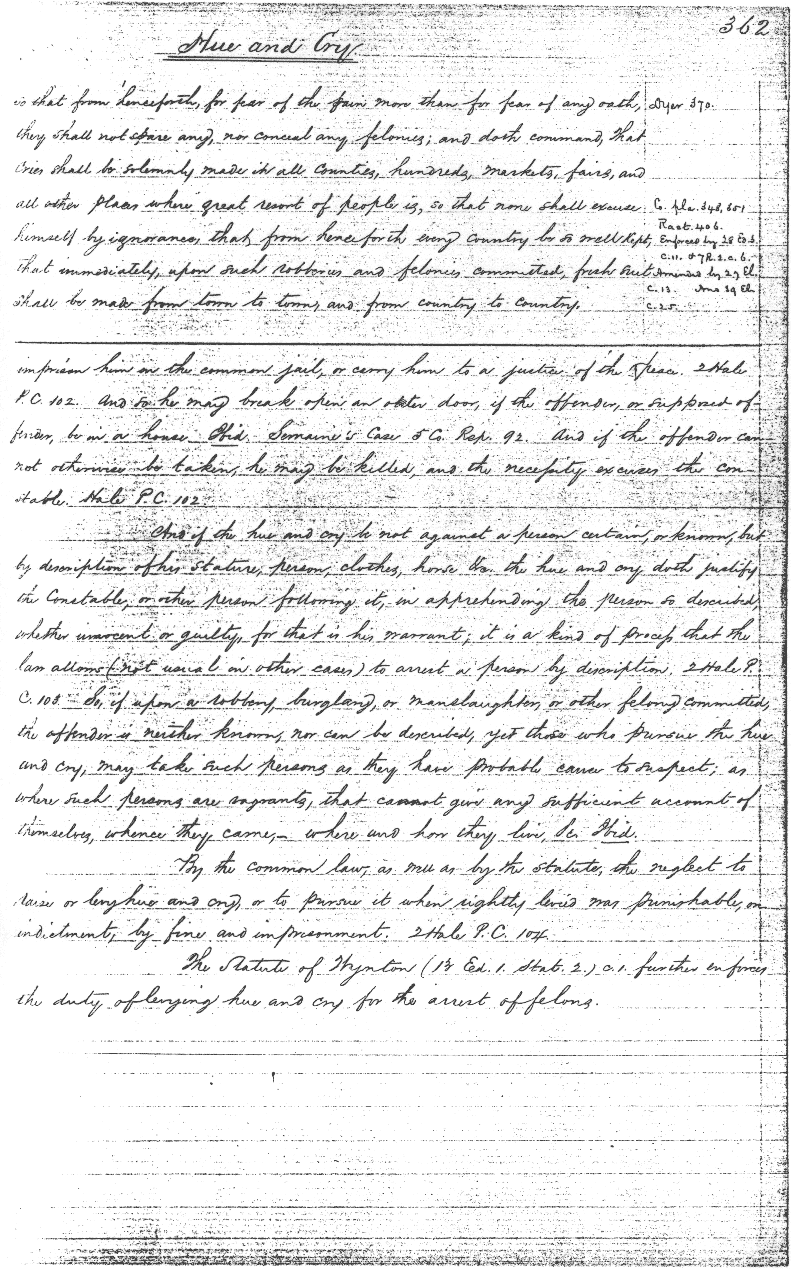 362
Hue and Cry.
is that from henceforth, for fear of the pain more than for fear of any oath,
Dyer 370.
they shall not spare any, nor conceal any felonies; and doth command, That
cries shall be solemnly made in all Counties, hundreds, markets, fairs, and
all other Places where great resort of people is, so that none shall excuse
Co. pla. 348, 351
Rast. 406.
himself by ignorance, that from henceforth every Country be so well Kept,
Enforced by 28 Ed. 3.
C. 11. & 7 R. 2. c. 6.
that immediately, upon such robberies and felonies committed, fresh suit
Amended by 27 El.
C. 13. Ano 39 El.
shall be made from town to town, and from country to country.
C. 25.
imprison him in the common jail, or carry him to a justice of the peace. 2 Hale
P.C. 102. And so he may break open an outer door, if the offender, or supposed of-
fender, be in a house. Ibid. Semaine's Case 5 Co. Rep. 92. And if the offender can-
not otherwise be taken, he may be killed, and the necessity excuses the con-
stable. Hale P.C. 102.
And if the hue and cry be not against a person certain, or known, but
by description of his stature, person, clothes, horse &c. the hue and cry doth justify
the Constable, or other person following it, in apprehending the person so described,
whether innocent or guilty, for that is his warrant; it is a kind of process that the
law allows (not usual in other cases) to arrest a person by description. 2 Hale P.
C. 103. So, if upon a robbery, burglary, or manslaughter, or other felony committed,
the offender is neither known, nor can be described, yet those who pursue the hue
and cry, may take such persons as they have probable cause to suspect; as
where such persons are vagrants, that cannot give any sufficient account of
themselves, whence they came, – where and how they live, &c. Ibid.
By the common law, as well as by the statute, the neglect to
raise or levy hue and cry, or to pursue it when rightly levied was punishable, on
indictment, by fine and imprisonment. 2 Hale P.C. 104.
The Statute of Wynton (13 Ed. 1. Stat. 2.) c. 1. further enforces
the duty of levying hue and cry for the arrest of felons.